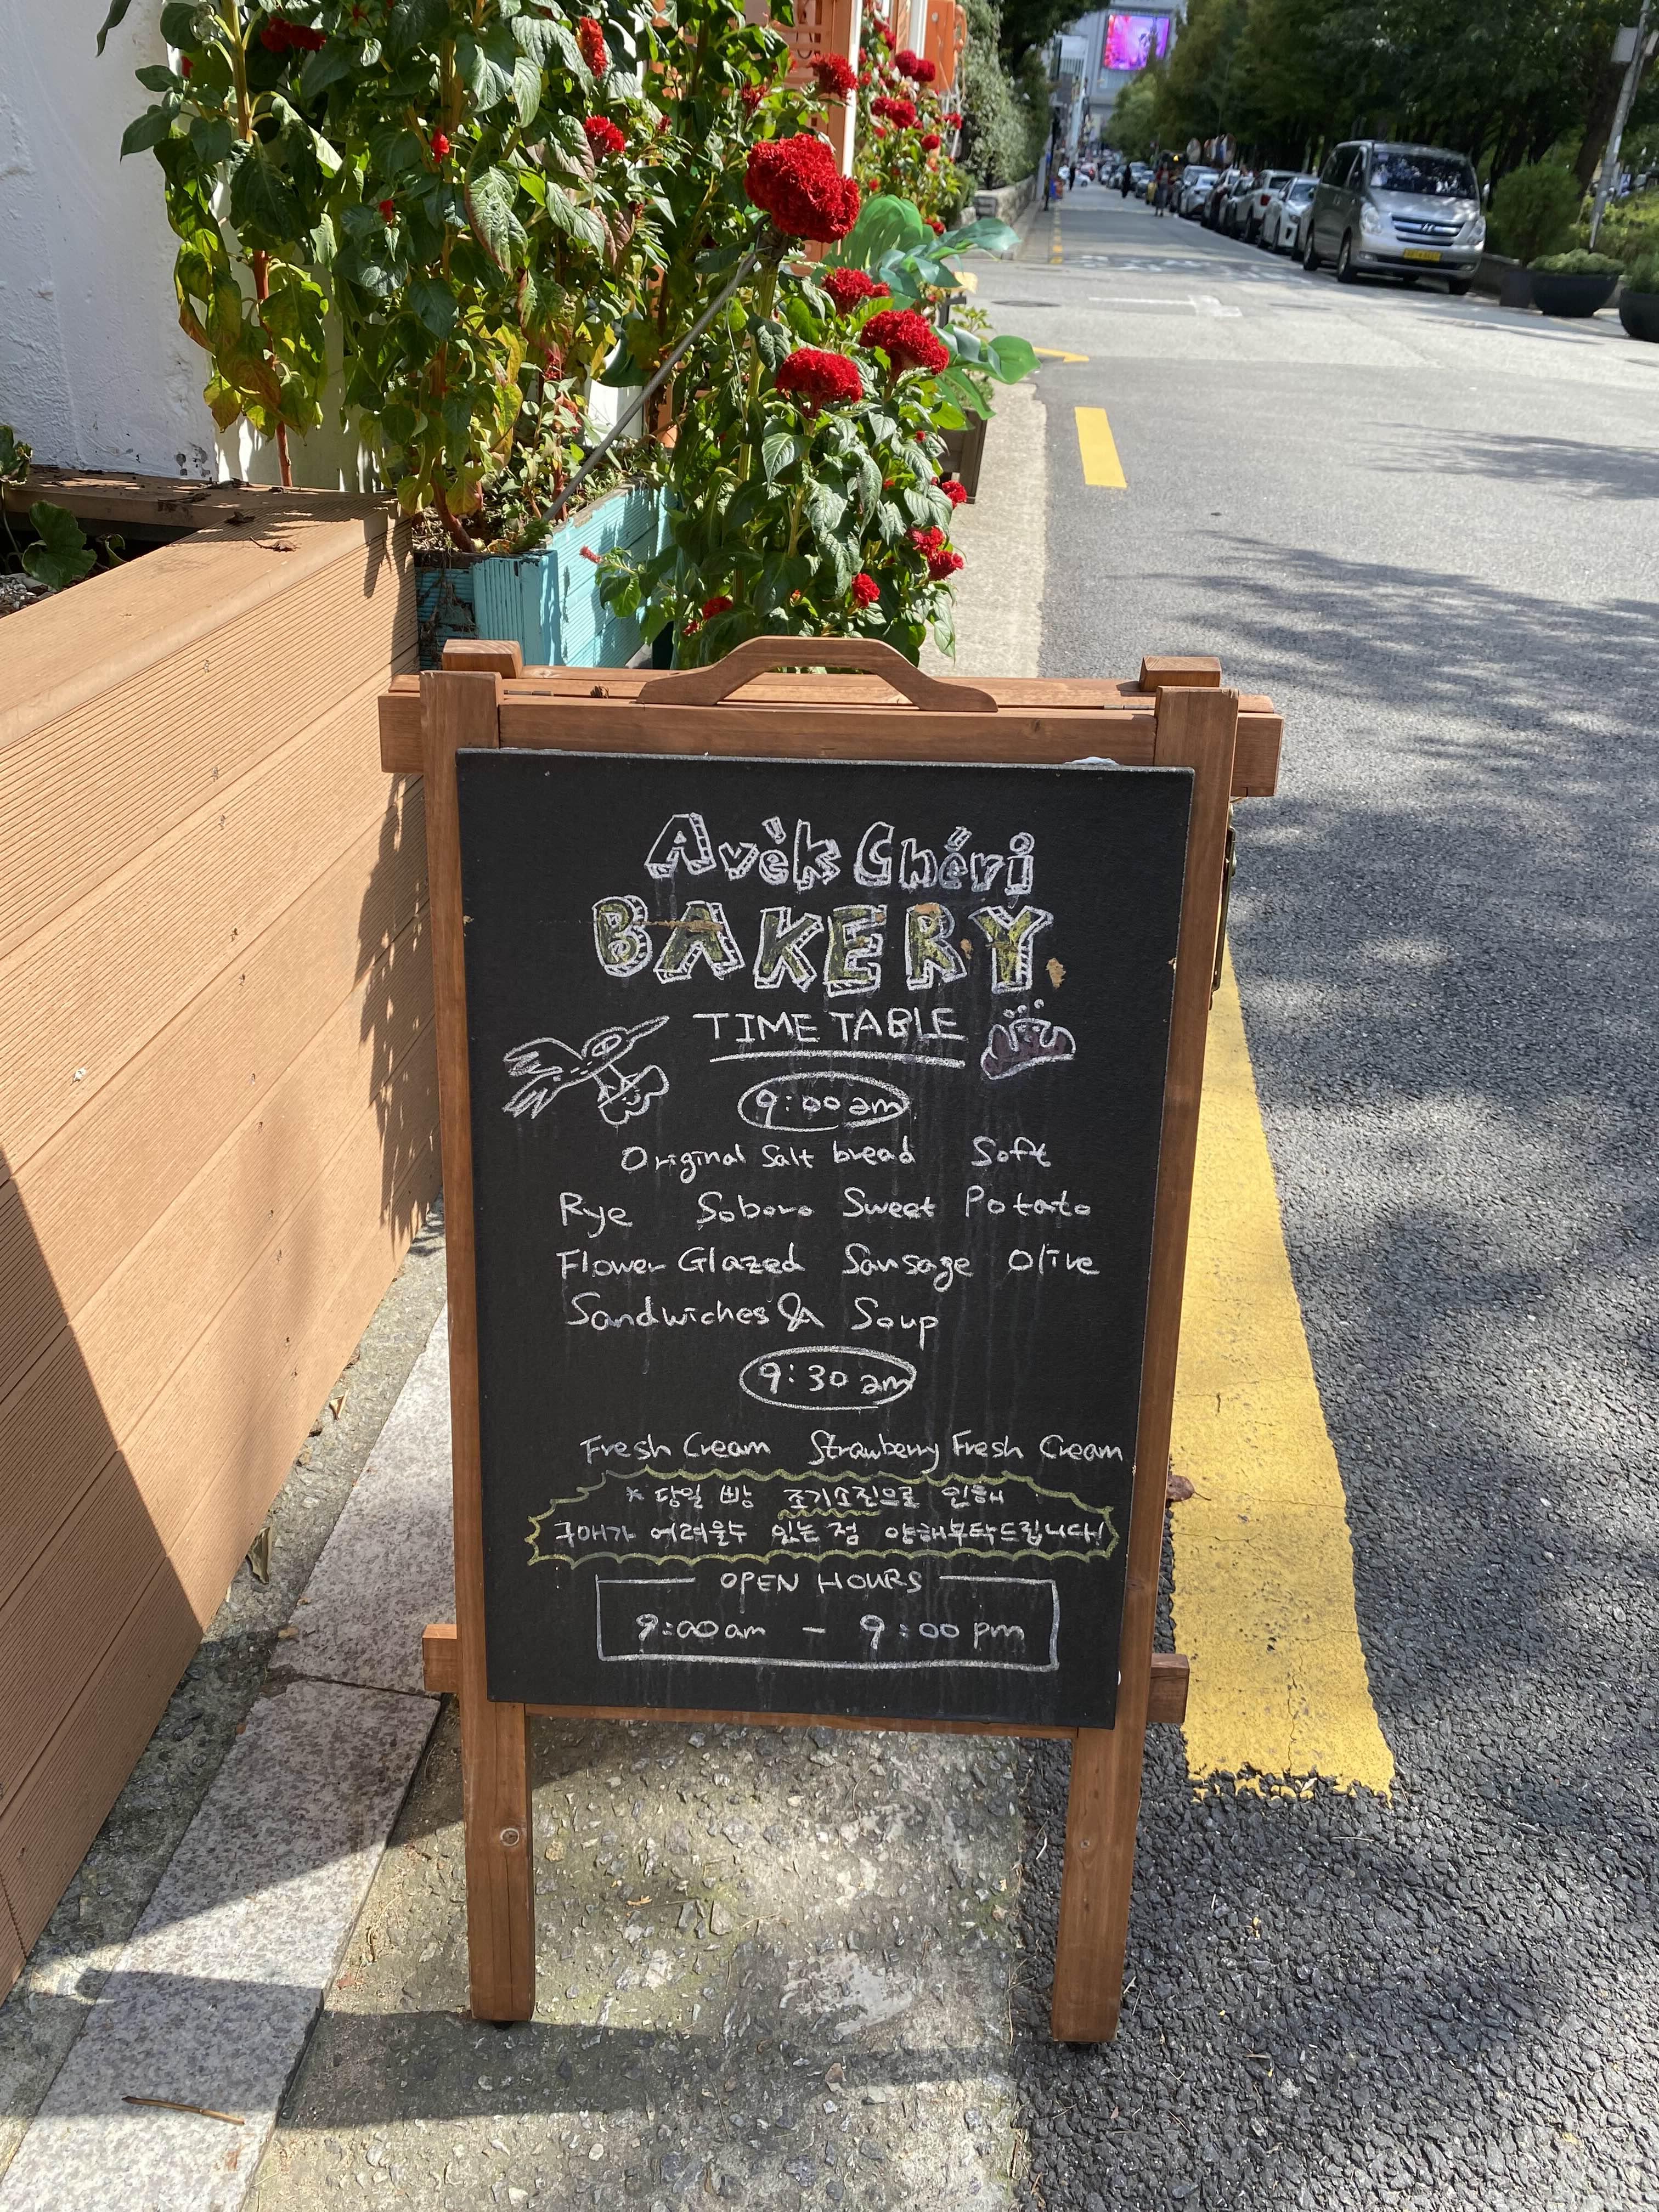 Avèk Chéri
BAKERY
TIME TABLE
9:00 am
Original Salt bread Soft
Rye Soboro Sweet Potato
Flower Glazed Sausage Olive
Sandwiches & Soup
9:30 am
Fresh Cream Strawberry Fresh Cream
*당일 빵 조기소진으로 인해
구매가 어려울수 있는 점 양해부탁드립니다!
OPEN HOURS
9:00 am - 9:00 pm